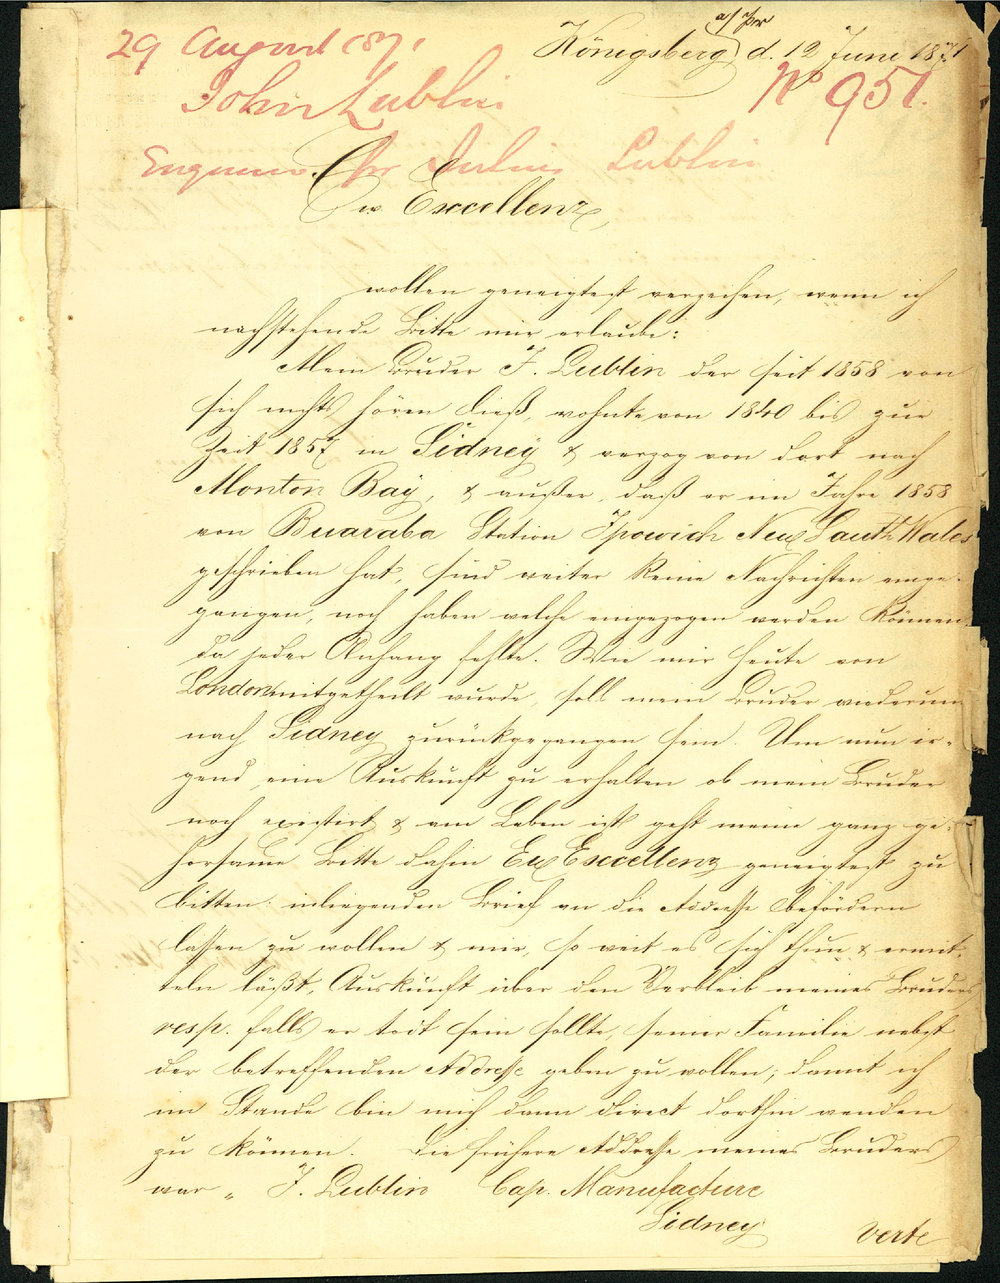 a/Pr
Königsberg d. 12 Juni 1871
29 August 1871
No 951.
John Lublin
Enquiries for Julius Lublin
Ew Excellenz,
wollen geneigtest verzeihen, wenn ich
nachstehende Bitte mir erlaube:
Mein Bruder J. Lublin der seit 1858 von
sich nichts hören ließ, wohnte von 1840 bis zur
Zeit 1857 in Sidney & verzog von dort nach
Monton Bay, & außer, daß er im Jahre 1858
von Buaraba Station Ipowich New South Wales
geschrieben hat, sind weiter keine Nachrichten einge-
gangen, noch haben welche eingezogen werden können,
da jeder Anhang fehlte. Wie mir heute von
London mitgetheilt wurde, soll mein Bruder wiederum
nach Sidney zurückgegangen sein. Um nun ir-
gend eine Auskunft zu erhalten ob mein Bruder
noch existirt & am Leben ist geht meine ganz ge-
horsame Bitte dahin Ew Excellenz geneigtest zu
bitten: inliegenden Brief an die Addresse befördern
lassen zu wollen & mir, so weit es sich thun & ermit-
teln läßt, Auskunft über den Verbleib meines Bruders
resp. falls er todt sein sollte, seiner Familie nebst
der betreffenden Addresse geben zu wollen; damit ich
im Stande bin mich dann direct dorthin wenden
zu können. Die frühere Addresse meines Bruders
war „ J. Lublin Cap. Manufacture
Sidney
verte